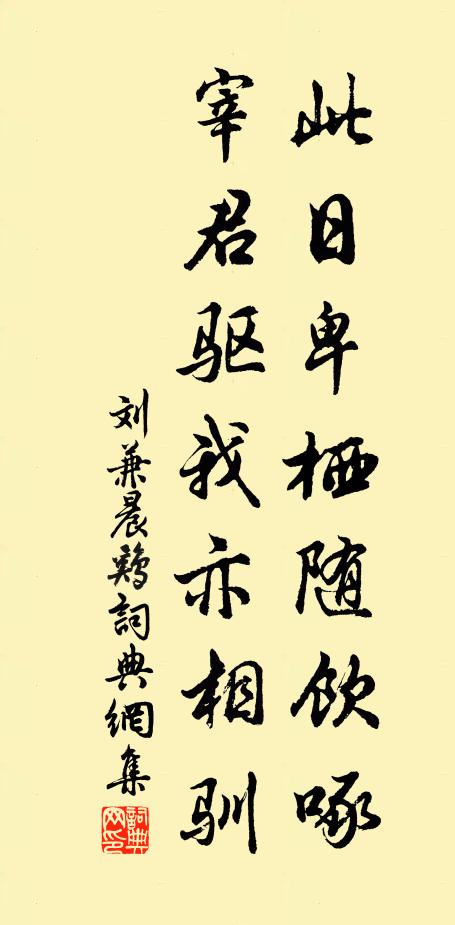 此日卑栖随饮啄
宰君驱我亦相驯
刘兼晨鸡詞典網集
詞典网印